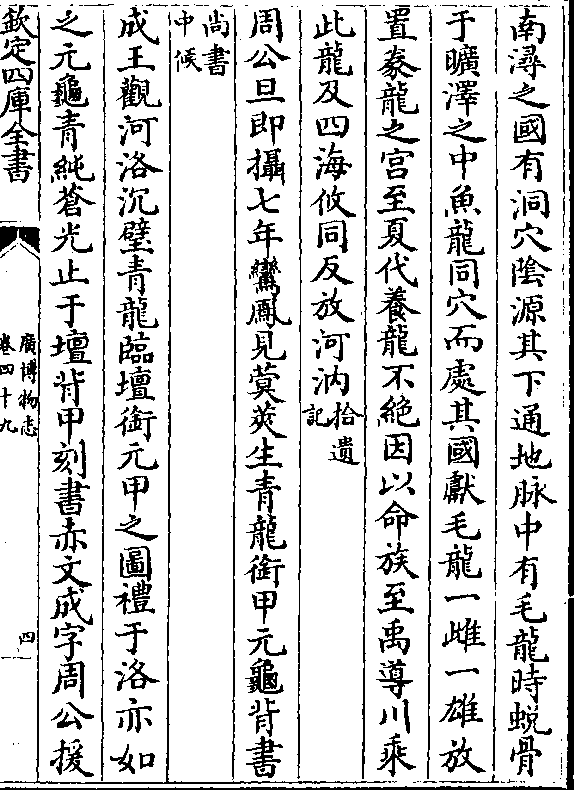 南潯之國有洞穴隂源其下通地脉中有毛龍時蛻骨
于曠澤之中魚龍同穴而處其國獻毛龍一雌一雄放
置豢龍之宫至夏代養龍不絶因以命族至禹導川乘
此龍及四海攸同反放河汭拾遺記
周公旦即攝七年鸞鳳見蓂莢生青龍銜甲元龜背書
尚書中候
成王觀河洛沉璧青龍臨壇銜元甲之圖禮于洛亦如
之元龜青純蒼光止于壇背甲刻書赤文成字周公援
欽定四庫全書
廣博物志
卷四十九
四